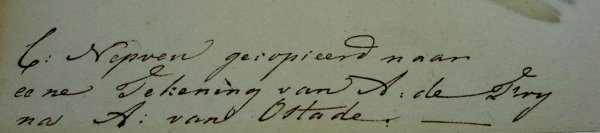 C: Nepveu gecopieerd naar
eene Tekening van A: de Frey
na A: van Ostade. —